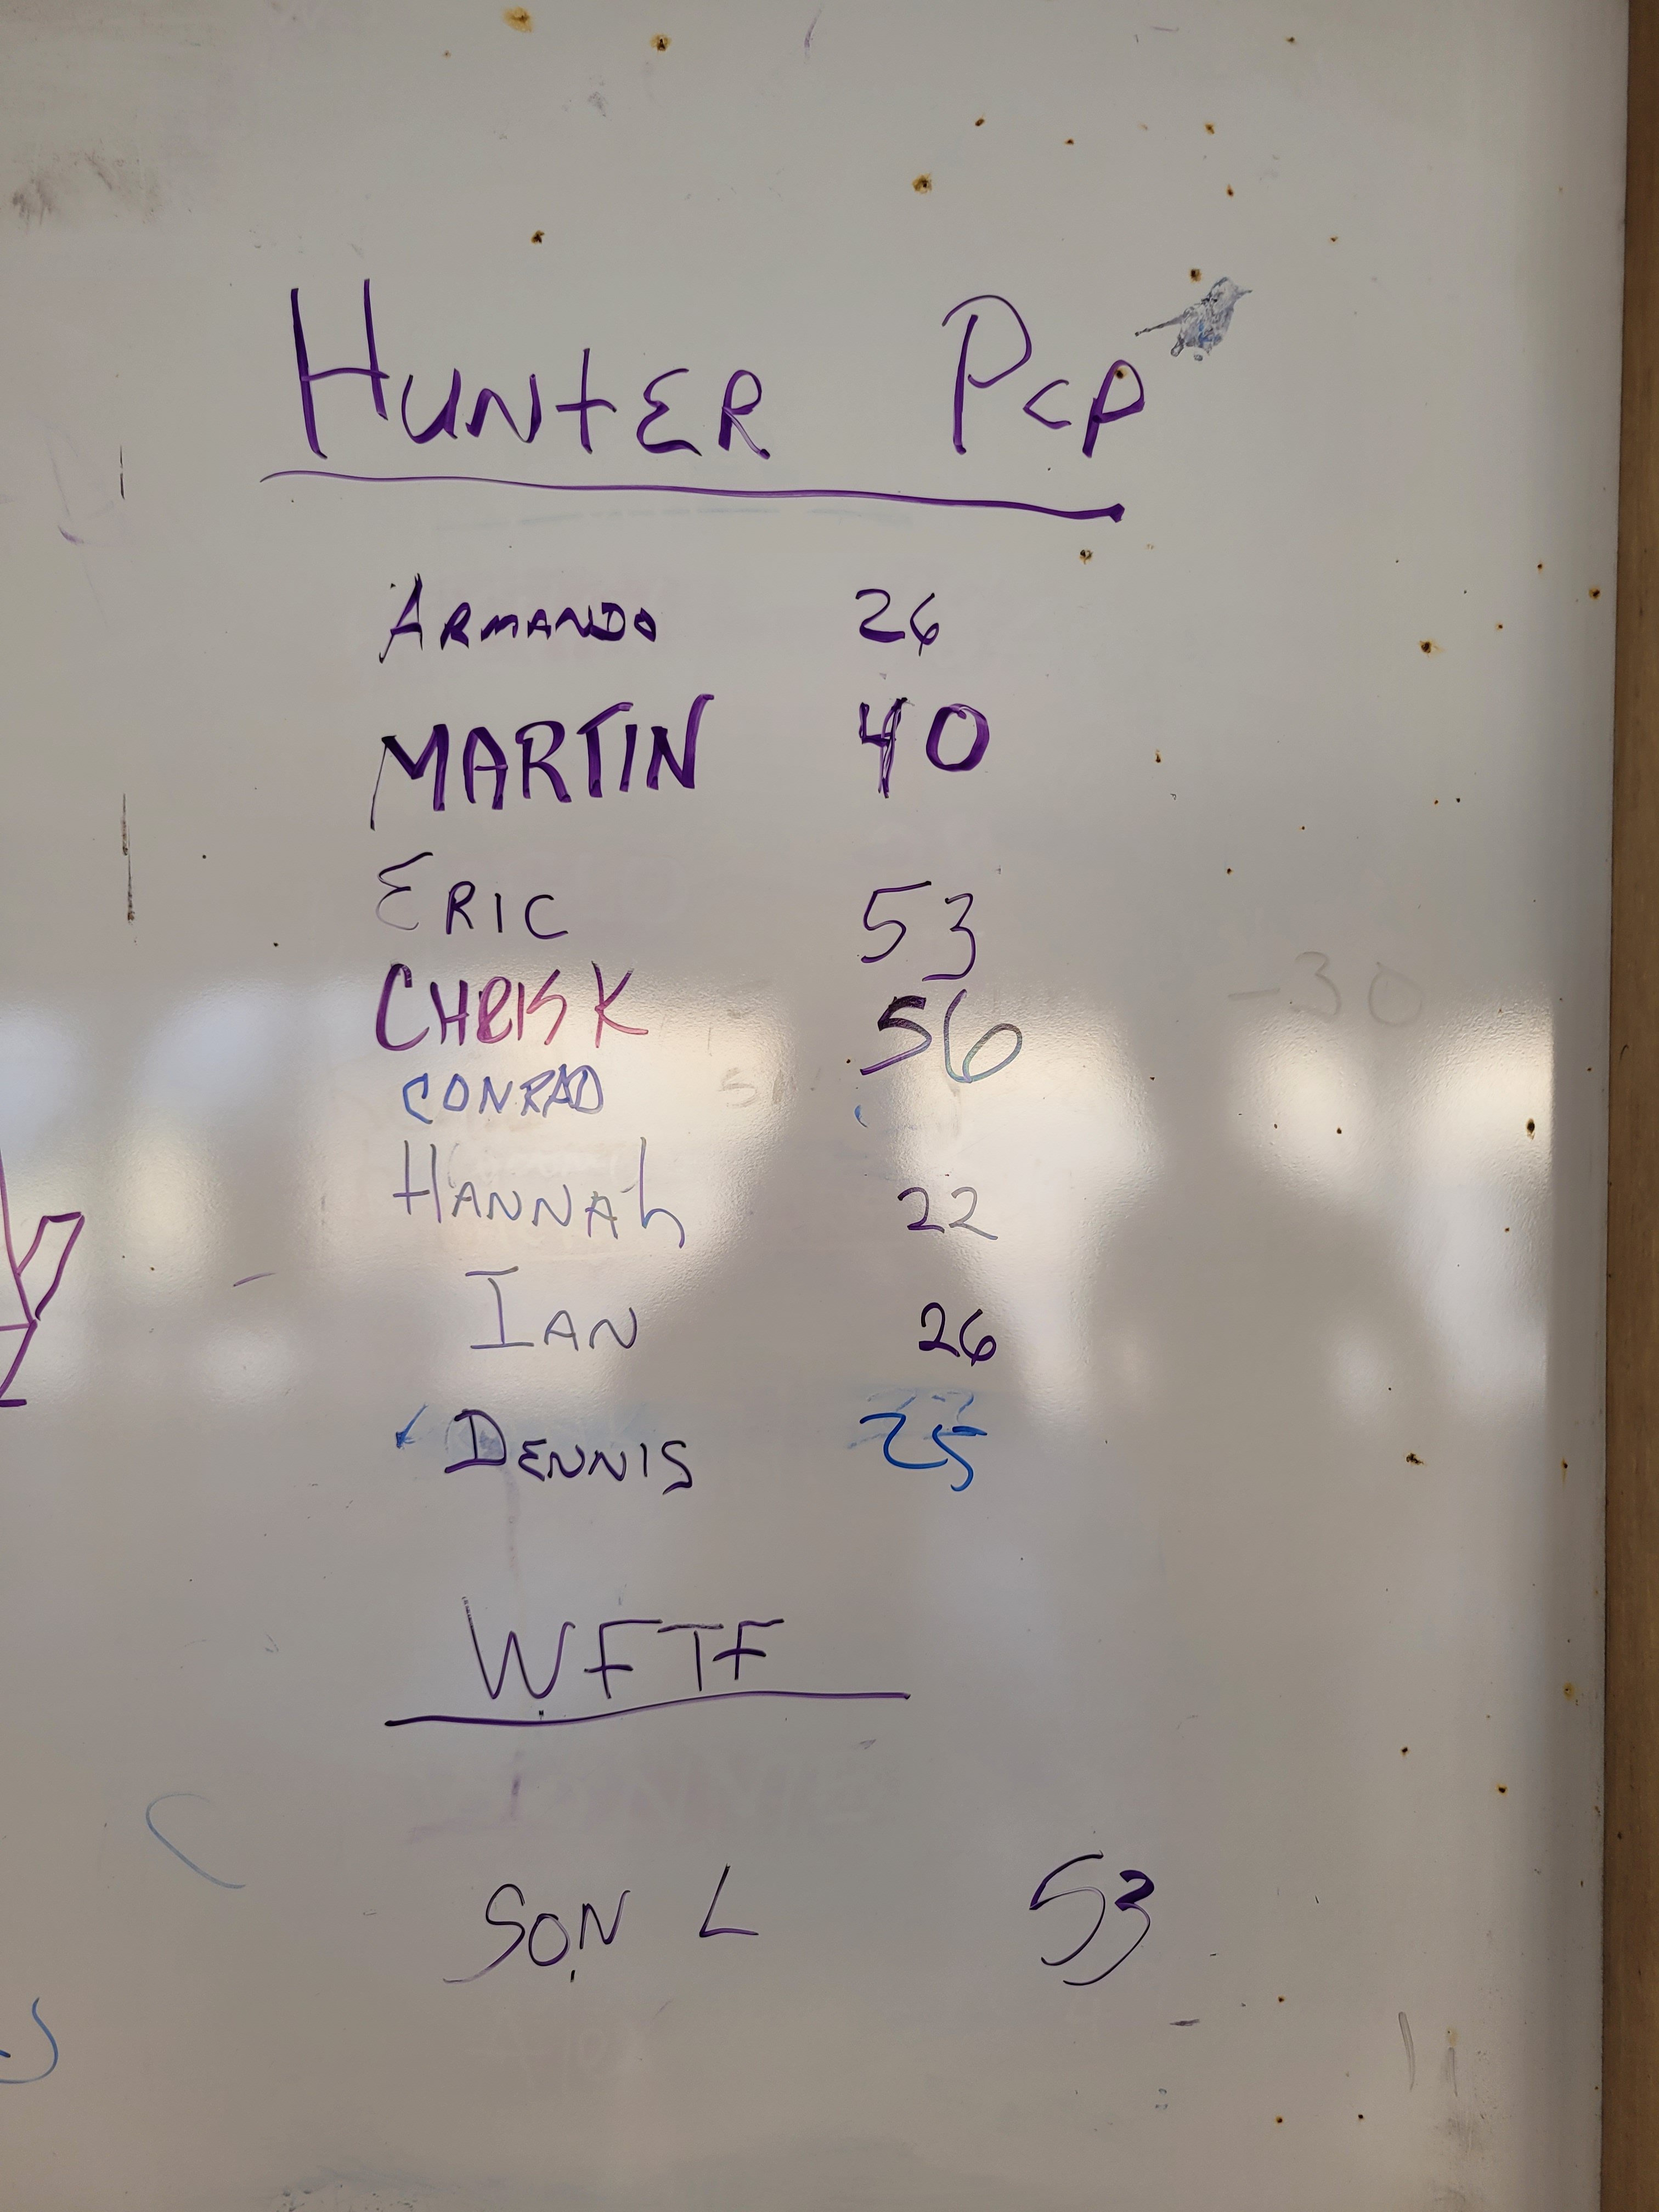 HUNTER PCP
ARMANDO 26
MARTIN 40
ERIC 53
CHRIS K 56
-30
CONRAD
HANNAH 22
IAN 26
DENNIS 25
WFTF
SON L 53